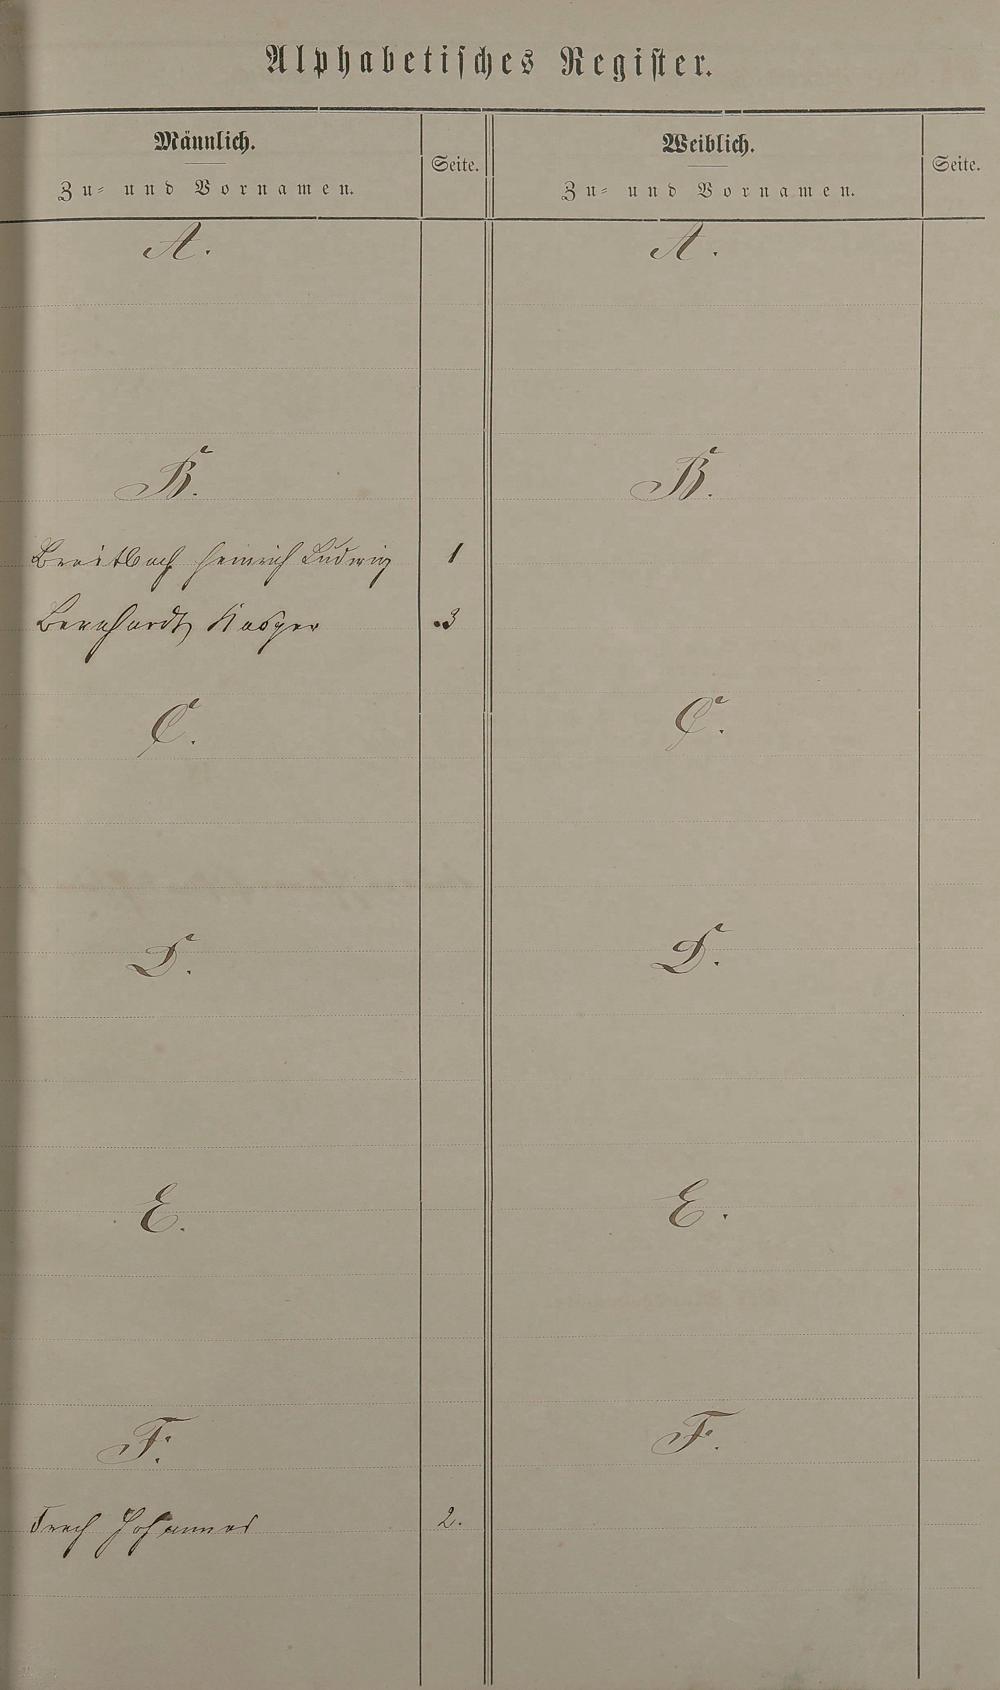 Alphabetisches Register.
Männlich.
Zu- und Vornamen.
Seite.
Weiblich.
Zu- und Vornamen.
Seite.
A.
A.
B.
B.
Breitbach Heinrich Ludwig 1
Bernhardt Kasper 3
C.
C.
D.
D.
E.
E.
F.
F.
Frech Johannes 2.